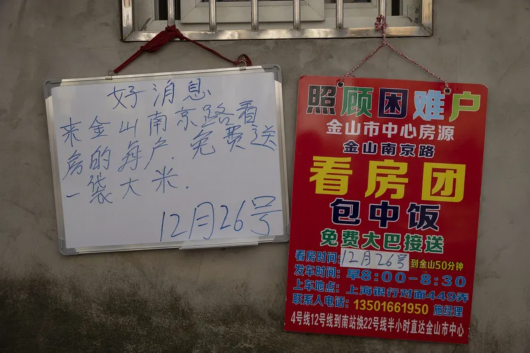 好消息
来金山南京路看
房的每户.免费送
一袋大米.
12月26号
照顾困难户
金山市中心房源
金山南京路
看房团
包中饭
免费大巴接送
看房时间:12月26号到金山50分钟
发车时间:早8:00-8:30
上车地点:上海银行对面449弄
联系人电话:13501661950 施经理
4号线12号线到南站换22号线半小时直达金山市中心